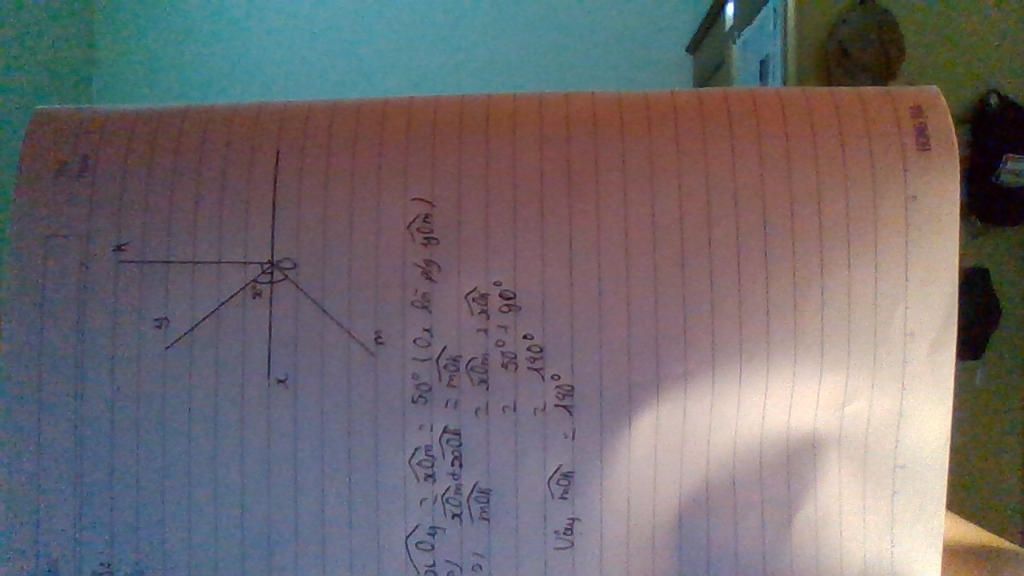 k
y
x
m
O
xOy = xOm = 50° (Ox là p/g yOm)
xOm + xOk = mOk
mOk = xOm + xOk
= 50° + 90°
= 140°
Vậy mOk = 140°